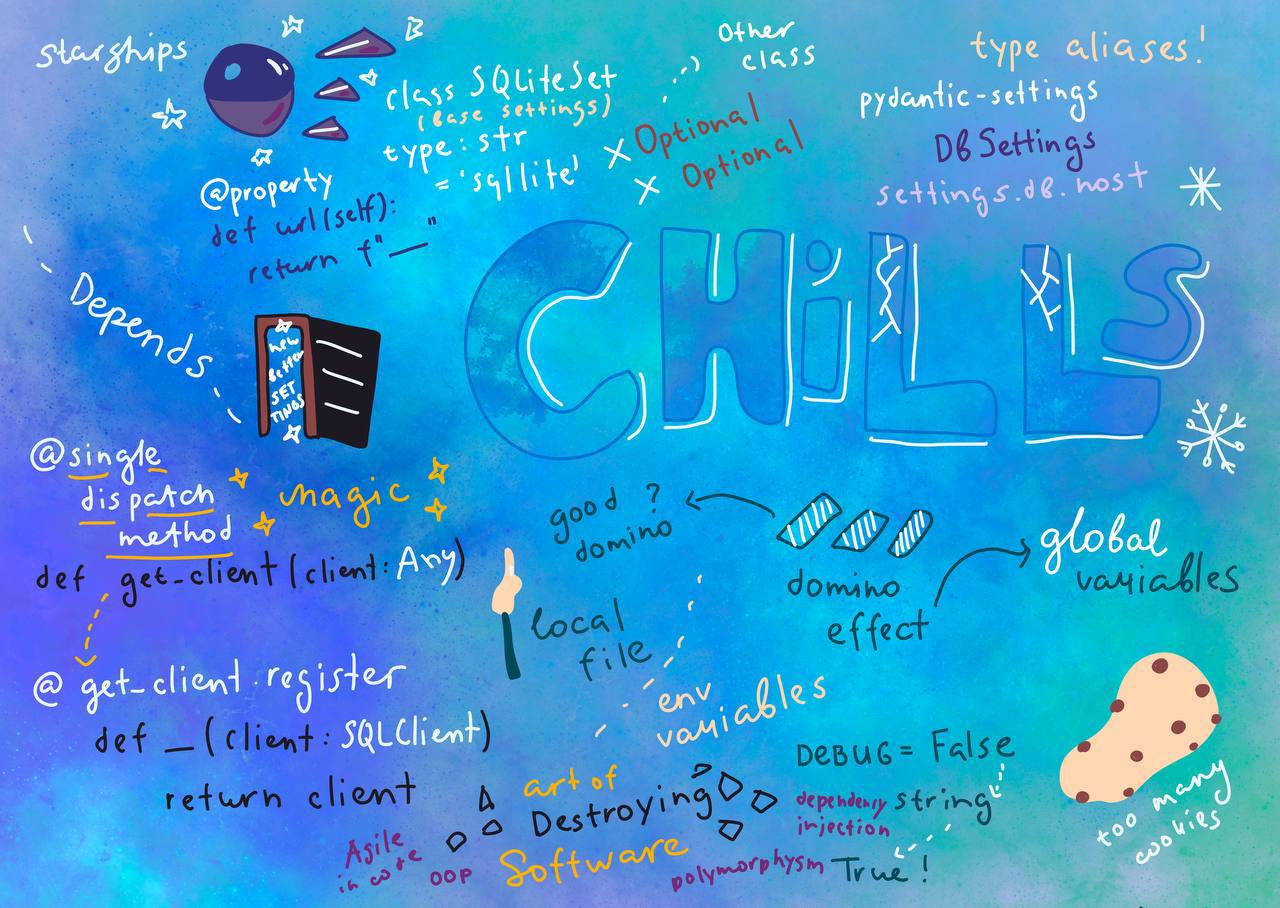 starships
class SQLiteSet
(Base settings)
type: str
= 'sqllite'
Other
class
× Optional
× Optional
type aliases!
pydantic-settings
DB Settings
settings.db.host
@property
def url(self):
return f"__"
Depends
new
Better
SET
TINGS
CHiLLS
@single
dispatch
method
magic
def get_client(client: Any)
@ get_client.register
def _ (client: SQLClient)
return client
good ?
domino
domino
effect
global
variables
local
file
env
variables
art of
Destroying
Software
Agile
in
OOP
DEBUG = False
dependency
injection
string
polymorphysm
True!
too many
cookies